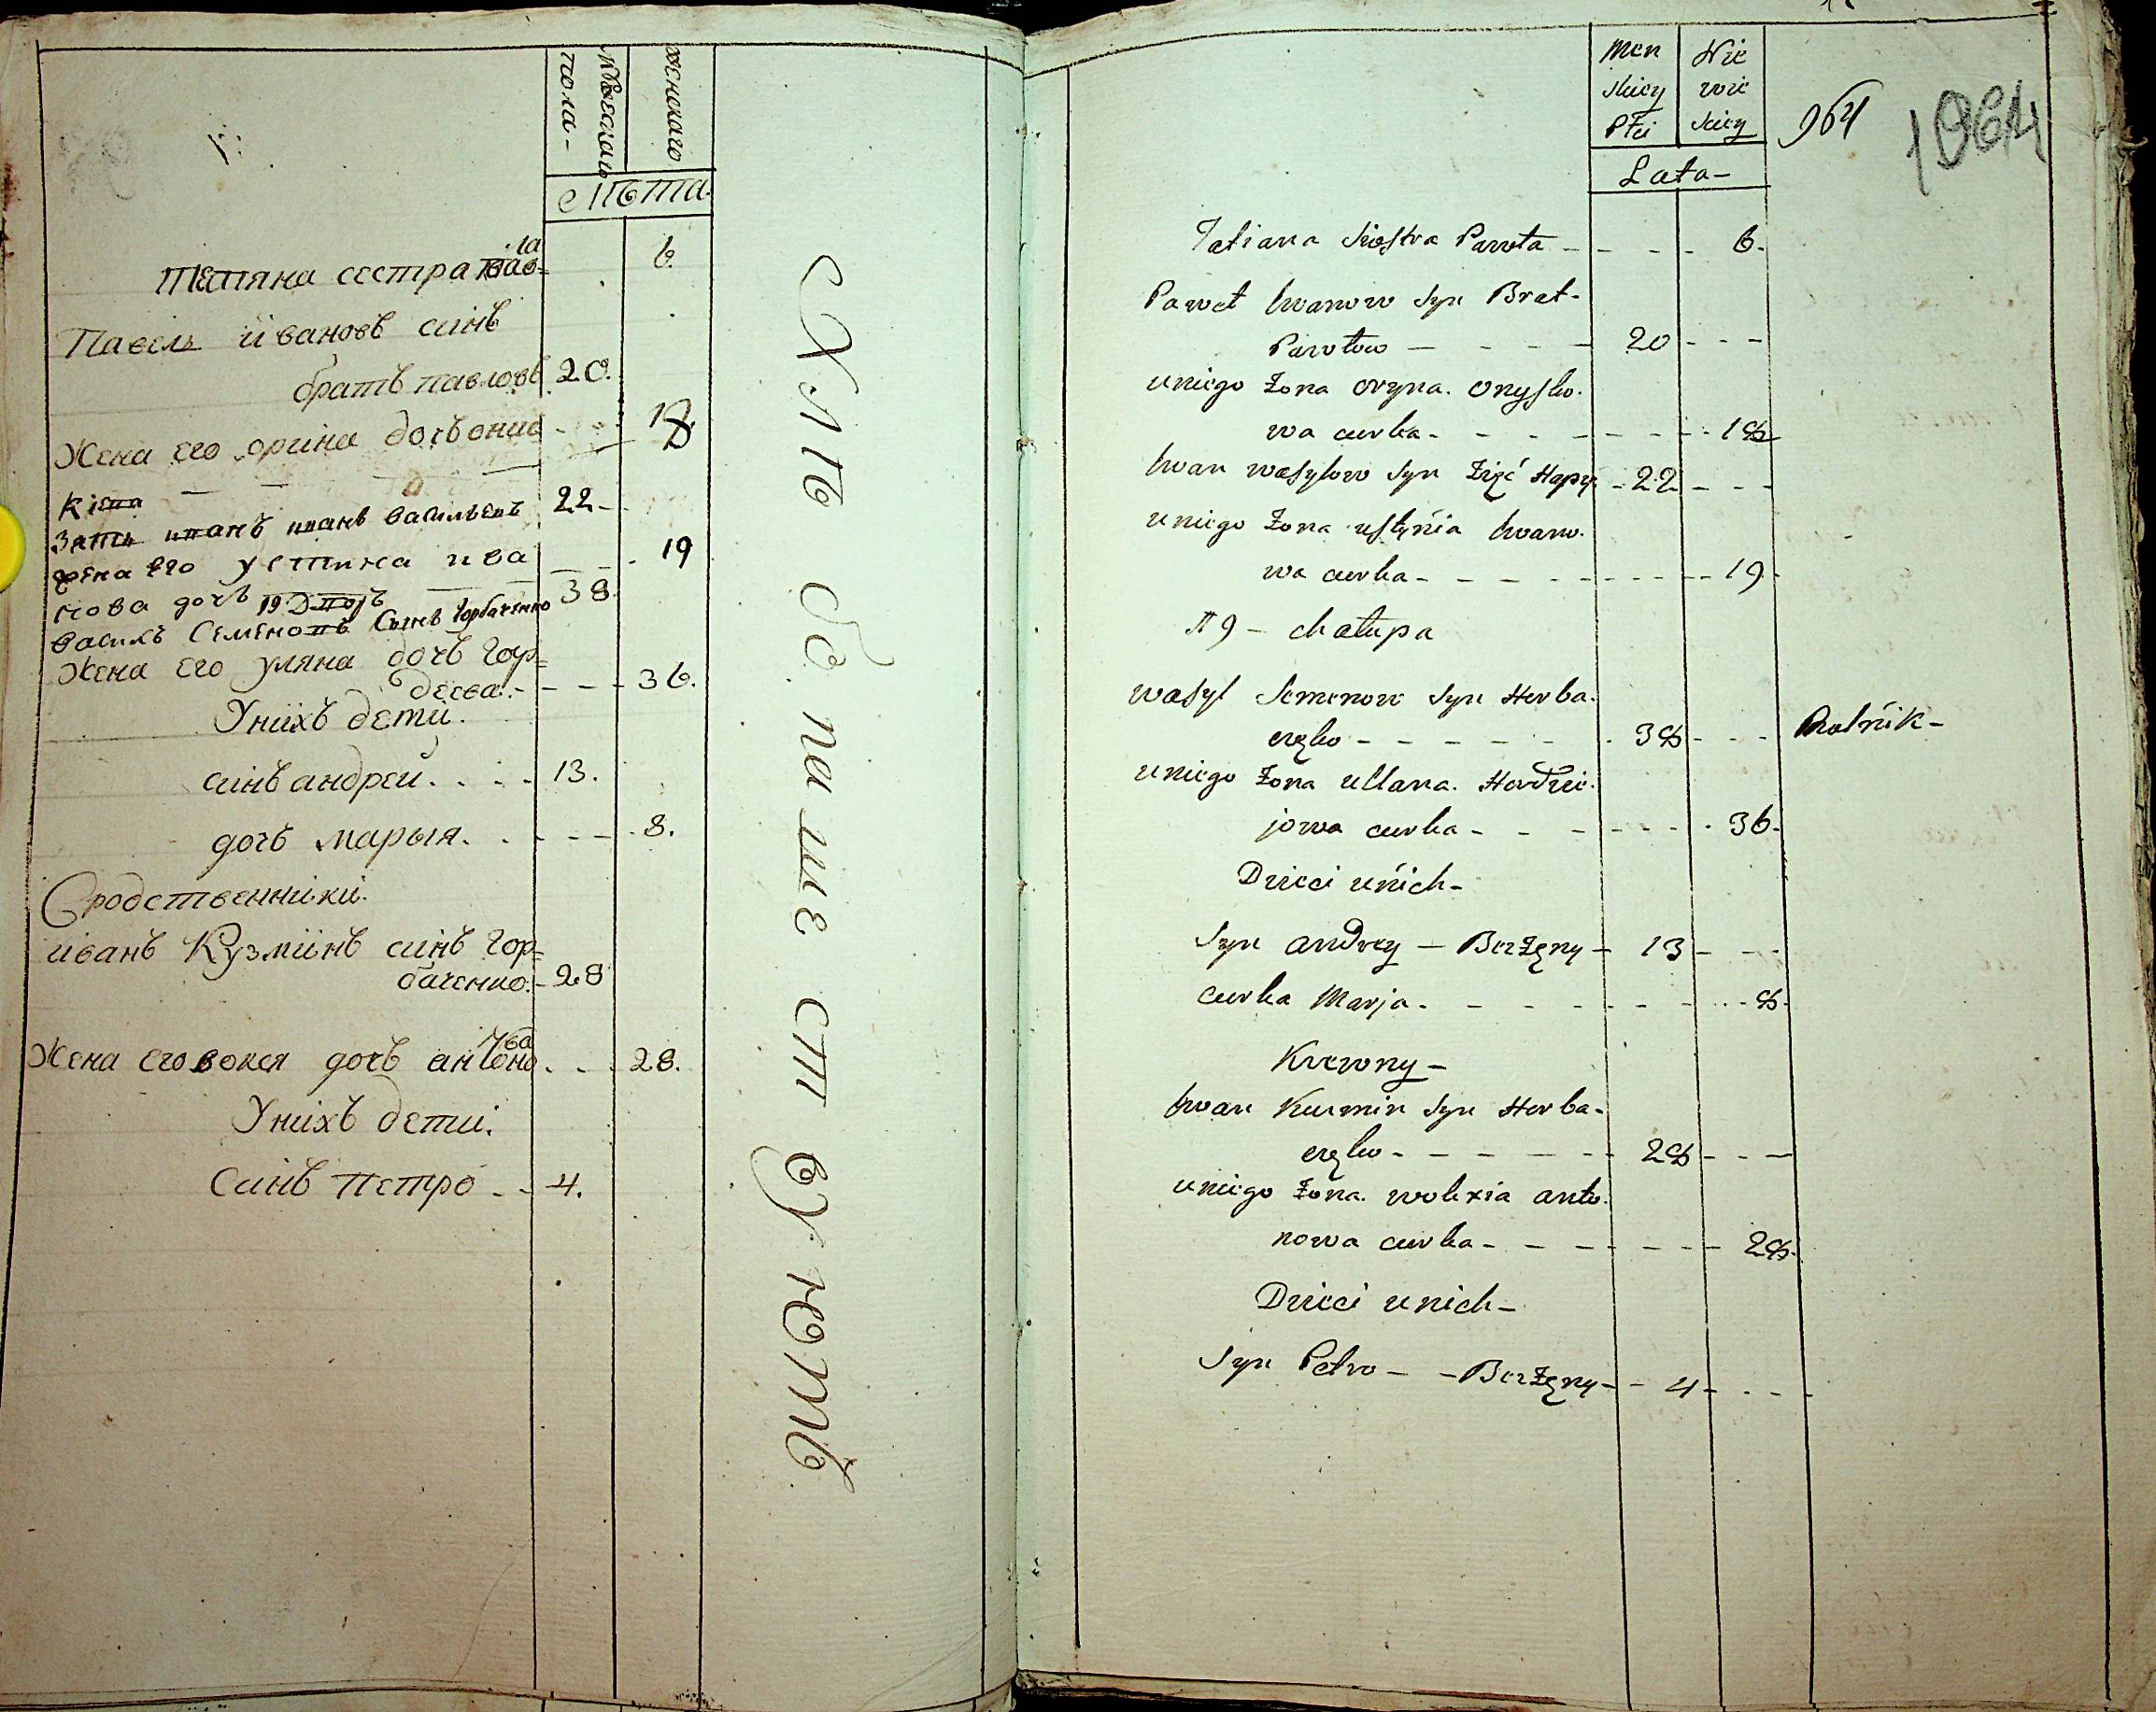 мужескаго
пола-
женскаго
Лѣта.
Тетяна сестра Пав=
ла
6.
Павелъ Ивановъ синъ
братъ павловъ 20.
Жена его орина дочъ онис - - - 18.
кіева
Зять иванъ Васильевъ 22-
жена его устина ива - - - 19
нова дочъ
19 Дворъ
Василъ Семеновъ Сынъ горбаченко 38.
Жена его уляна дочъ Гор=
деева. - - - 36.
Унихъ дети.
синъ андрей. . - - 13.
дочъ марыя. . - - - 8.
Сродственники.
иванъ Кузминъ синъ Гор=
баченко. - 28
Жена его вокся дочъ антоно
ва
. - . 28.
Унихъ дети.
Синъ Петро - - 4.
Хлѣбопашествуютъ
Men
skiey
Płci
Nie
wie
sciey
Lata-
964
1964
Tatiana Siostra Pawła - - - - 6.
Paweł Iwanow Syn Brat-
Pawłow - - - - 20 - - -
uniego Żona oryna. onysko.
wa curka - - - - - - - 18
Iwan wasylow Syn Zięć - 22 - - -
uniego Żona ustynia Iwano.
wa curka - - - - - - - 19.
19 - chałupa
wasyl Semenow Syn Horba.
częko - - - - - - 38 - - - Rolnik-
uniego Żona ullana. Hordzie.
jowa curka - - - - - - 36.
Dzieci unich-
Syn andrey - Bezżęny - 13 - - -
curka Marja. - - - - - - - 8.
Krewny -
Iwan Kuzmin Syn Horba-
częko - - - - - - 28 - - -
uniego Żona. woksia anto.
nowa curka - - - - - - - 28.
Dzieci unich -
Syn Petro - - Bezżęny - - 4 - - - -